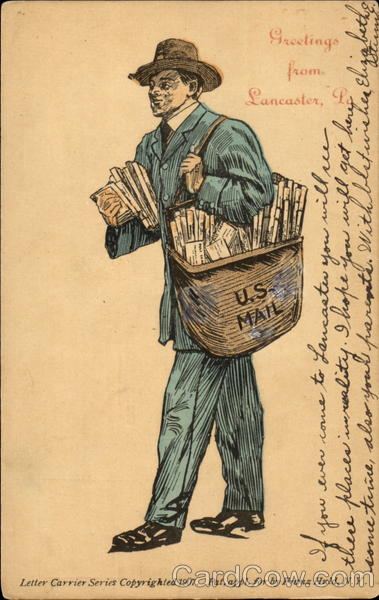 Greetings
from
Lancaster, Pa
U.S.
MAIL
If you ever come to Lancaster you will see
these places in reality. I hope you will get here
sometime, also your parents. With best wishes Elizabeth
Letter Carrier Series Copyrighted 1907.
CardCow.com